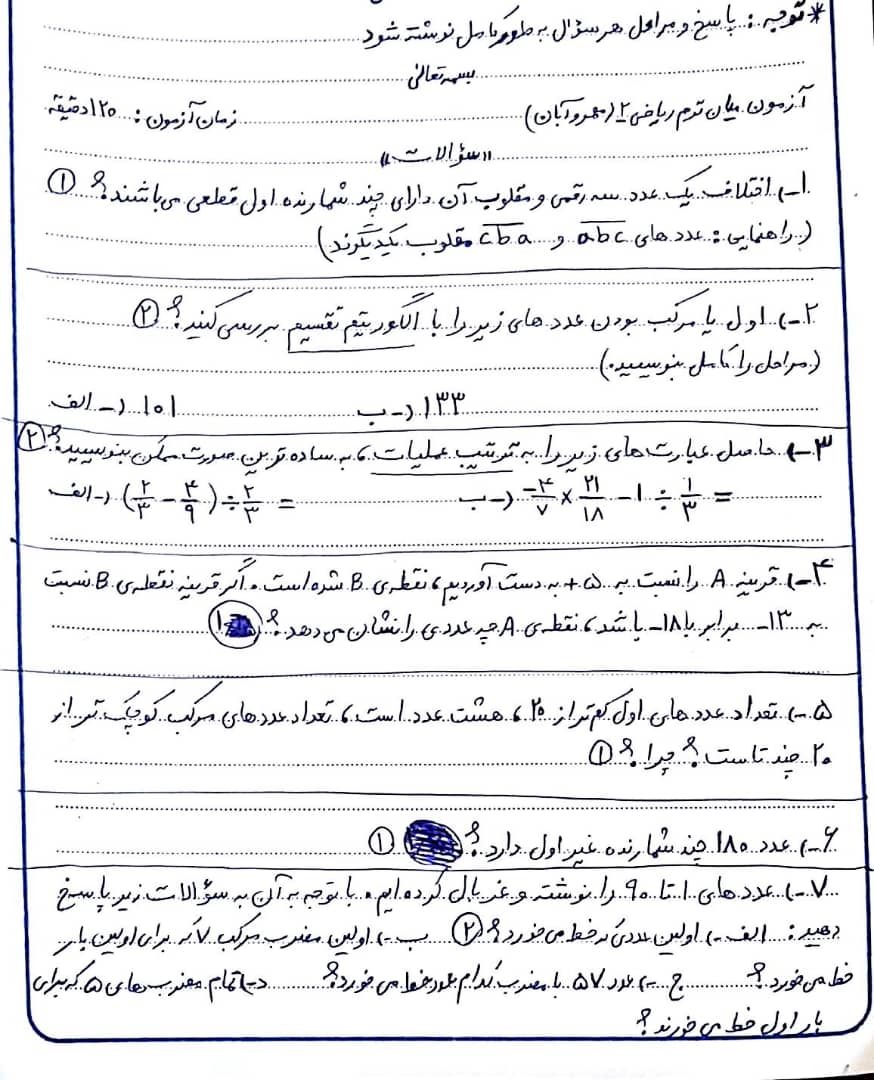 * توجه : پاسخ و مراحل هر سؤال به طور کامل نوشته شود
بسمه تعالی
آزمون میان ترم ریاضی ۲ (مهر و آبان) زمان آزمون : ۱۲۰ دقیقه
«سؤالات»
۱-) اختلاف یک عدد سه رقمی و مقلوب آن دارای چند شمارنده اول قطعی می باشند؟ ①
(راهنمایی : عدد های abc و cba مقلوب یکدیگرند)
۲-) اول یا مرکب بودن عدد های زیر را با الگوریتم تقسیم بررسی کنید؟ ②
(مراحل را کامل بنویسید.)
الف -) ۱۰۱ ب -) ۱۳۳
۳-) حاصل عبارت های زیر را به ترتیب عملیات ، به ساده ترین صورت ممکن بنویسید؟ ②
الف -) (۲/۳ - ۴/۹) ÷ ۲/۳ = ب -) -۴/۷ × ۲۱/۱۸ - ۱ ÷ ۱/۳ =
۴-) قرینه A را نسبت به ۵+ به دست آوردیم ، نقطه ی B شده است . اگر قرینه نقطه ی B نسبت
به ۱۳- برابر با ۱۸- باشد ، نقطه ی A چه عددی را نشان می دهد؟ ①
۵-) تعداد عدد های اول کم تر از ۲۰ ، هشت عدد است ، تعداد عدد های مرکب کوچک تر از
۲۰ چند تاست ؟ چرا ؟ ①
۶-) عدد ۱۸۰ چند شمارنده غیر اول دارد ؟ ①
۷-) عدد های ۱ تا ۹۰ را نوشته و غربال کرده ایم . با توجه به آن به سؤالات زیر پاسخ
دهید : الف -) اولین عددی که خط می خورد ؟ ② ب -) اولین مضرب مرکب ۷ که برای اولین بار
خط می خورد ؟ ج -) عدد ۵۷ با مضرب کدام عدد خط می خورد؟ د -) تمام مضرب های ۵ که برای
بار اول خط می خورند ؟